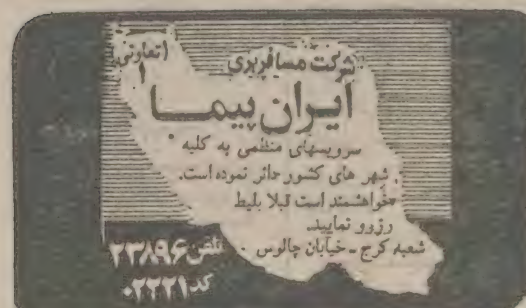 شرکت مسافربری
(تعاونی ۱)
ایران پیما
سرویسهای منظمی به کلیه
شهر های کشور دائر نموده است.
خواهشمند است قبلا بلیط
رزوو نمایید.
شعبه کرج - خیابان چالوس
تلفن ۲۳۸۹۶
کد ۰۲۲۲۱